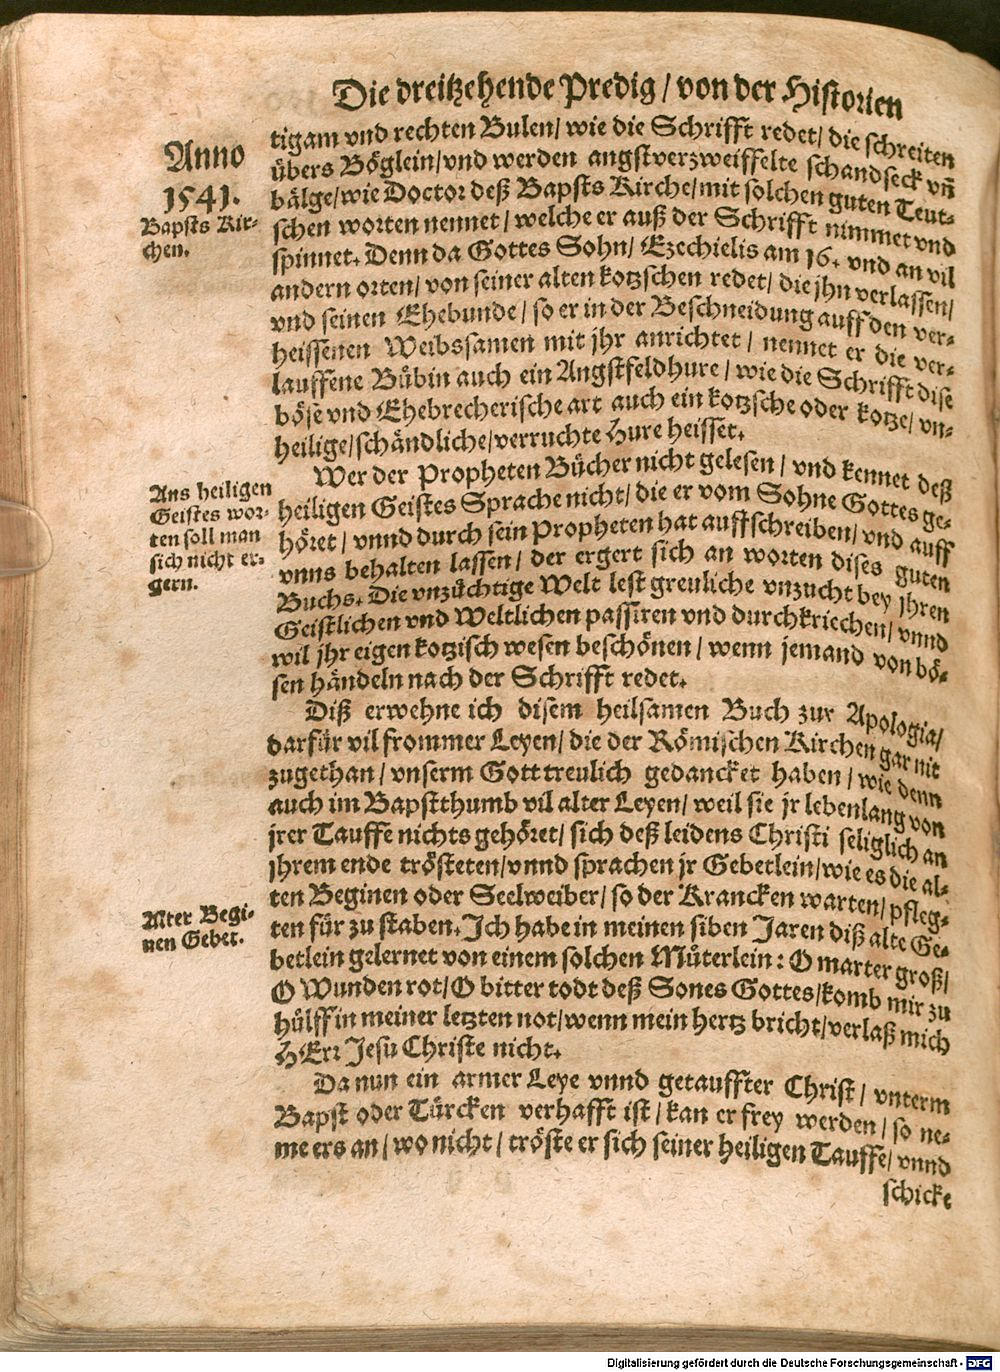 Die dreitzehende Predig / von der Historien
Anno
1541.
Bapsts Kir-
chen.
tigam vnd rechten Bulen / wie die Schrifft redet / die schreiten
übers Böglein / vnd werden angstverzweiffelte schandseck vñ
bälge / wie Doctor deß Bapsts Kirche / mit solchen guten Teut-
schen worten nennet / welche er auß der Schrifft nimmet vnd
spinnet. Denn da Gottes Sohn / Ezechielis am 16. vnd an vil
andern orten / von seiner alten kotzschen redet / die jhn verlassen /
vnd seinen Ehebunde / so er in der Beschneidung auff den ver-
heissenen Weibssamen mit jhr anrichtet / nennet er die ver-
lauffene Bübin auch ein Angstfeldhure / wie die Schrifft dise
böse vnd Ehebrecherische art auch ein kotzsche oder kotze / vn-
heilige / schändliche / verruchte Hure heisset.
Ans heiligen
Geistes wor-
ten soll man
sich nicht er-
gern.
Wer der Propheten Bücher nicht gelesen / vnd kennet deß
heiligen Geistes Sprache nicht / die er vom Sohne Gottes ge-
höret / vnnd durch sein Propheten hat auffschreiben / vnd auff
vnns behalten lassen / der ergert sich an worten dises guten
Buchs. Die vnzüchtige Welt lest greuliche vnzucht bey jhren
Geistlichen vnd Weltlichen passiren vnd durchkriechen / vnnd
wil jhr eigen kotzisch wesen beschönen / wenn jemand von bö-
sen händeln nach der Schrifft redet.
Diß erwehne ich disem heilsamen Buch zur Apologia /
darfür vil frommer Leyen / die der Römischen Kirchen gar nit
zugethan / vnserm Gott treulich gedancket haben / wie denn
auch im Bapstthumb vil alter Leyen / weil sie jr lebenlang von
jrer Tauffe nichts gehöret / sich deß leidens Christi seliglich an
jhrem ende trösteten / vnnd sprachen jr Gebetlein / wie es die al-
ten Beginen oder Seelweiber / so der Krancken warten / pfleg-
ten für zu staben. Ich habe in meinen siben Jaren diß alte Ge-
Alter Begi-
nen Gebet.
betlein gelernet von einem solchen Müterlein: O marter groß /
O Wunden rot / O bitter todt deß Sones Gottes / komb mir zu
hülff in meiner letzten not / wenn mein hertz bricht / verlaß mich
HErr Jesu Christe nicht.
Da nun ein armer Leye vnnd getauffter Christ / vnterm
Bapst oder Türcken verhafft ist / kan er frey werden / so ne-
me ers an / wo nicht / tröste er sich seiner heiligen Tauffe / vnnd
schicke
Digitalisierung gefördert durch die Deutsche Forschungsgemeinschaft - DFG